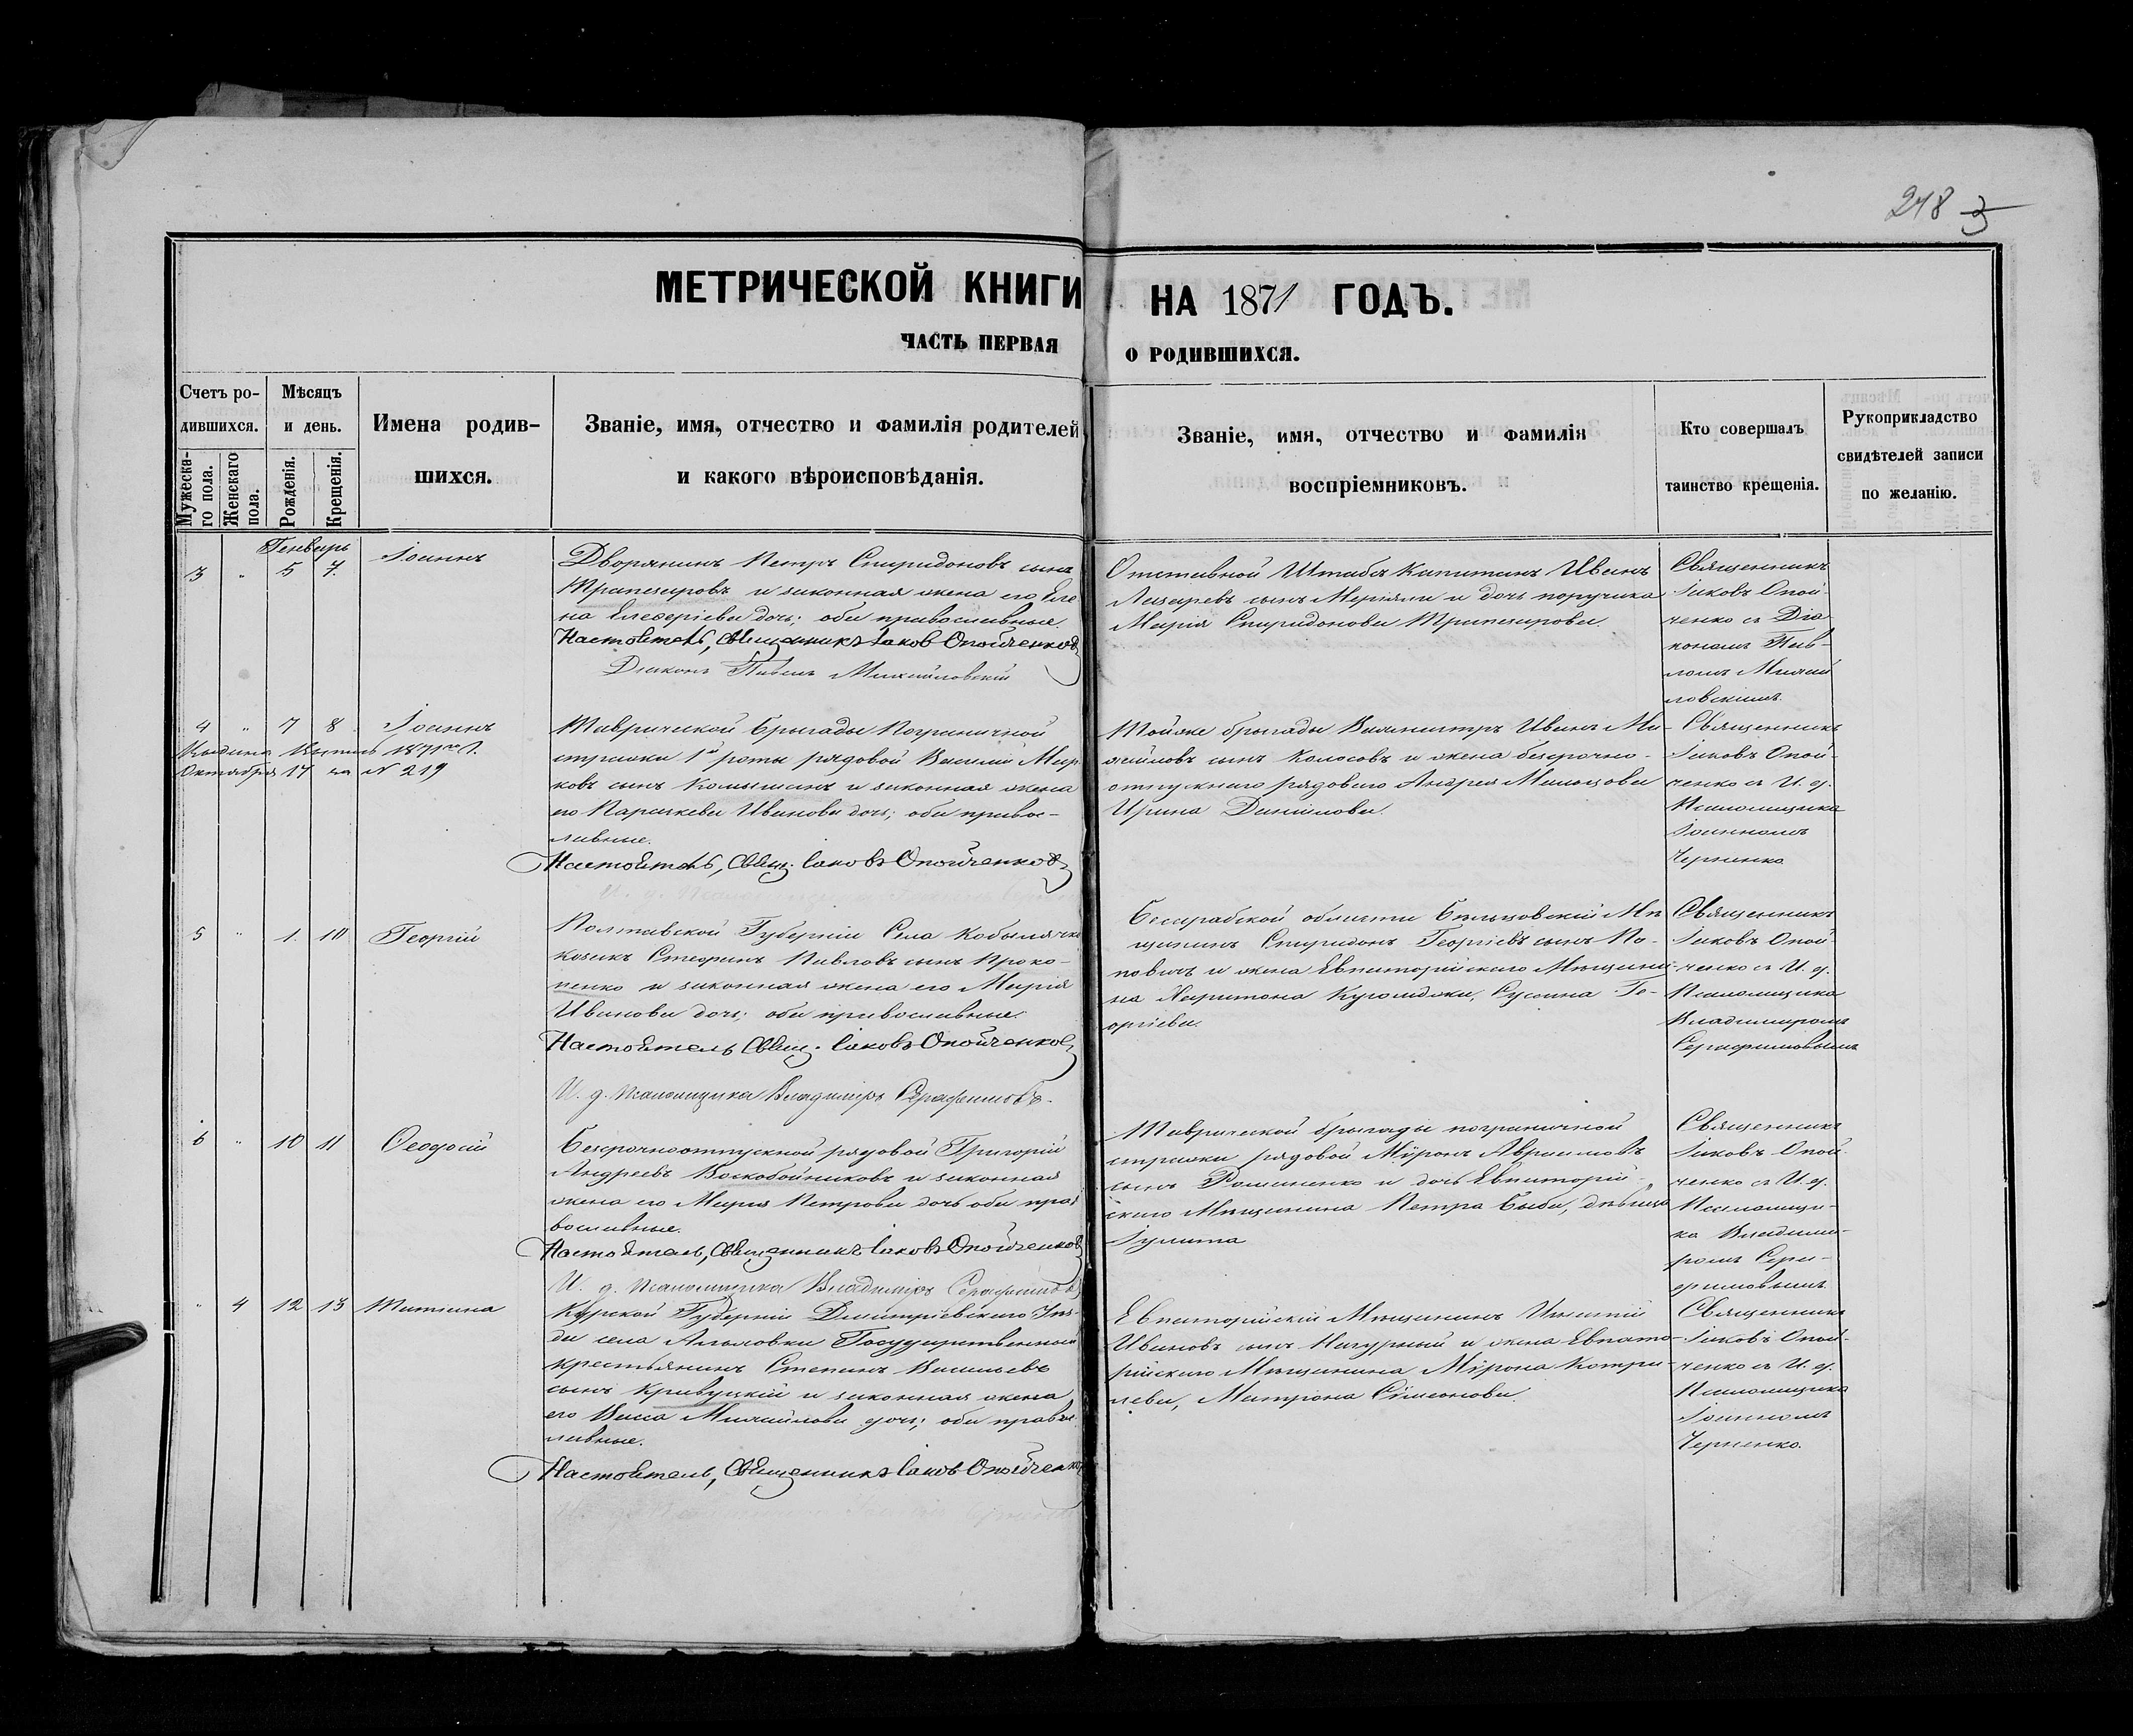 248 3
МЕТРИЧЕСКОЙ КНИГИ НА 1871 ГОДЪ.
ЧАСТЬ ПЕРВАЯ О РОДИВШИХСЯ.
Счетъ ро-
дившихся.
Мужеска-
го пола.
Женскаго
пола.
Мѣсяцъ
и день.
Рожденія.
Крещенія.
Имена родив-
шихся.
Званіе, имя, отчество и фамилія родителей
и какого вѣроисповѣданія.
Званіе, имя, отчество и фамилія
воспріемниковъ.
Кто совершалъ
таинство крещенія.
Рукоприкладство
свидѣтелей записи
по желанію.
Генварь
3 " 5 7. Іоаннъ
Дворянинъ Петръ Спиридоновъ сынъ
Трапезаровъ и законная жена его Еле
на Елеверіева дочь; оба православные.
Настоятель, Священникъ Іаковъ Опойченко
Діаконъ Павелъ Михайловскій
Отставной Штабъ Капитанъ Иванъ
Лазаревъ сынъ и дочь поручика
Марія Спиридонова Трапезарова.
Священникъ
Іаковъ Опой-
ченко съ Діа
кономъ Пав-
ломъ Михай
ловскимъ.
4 " 7 8 Іоаннъ
Выдана 1871го г.
Октября 17 за N 219
Таврической бригады Пограничной
стражи 1й роты рядовой Василій Мар
ковъ сынъ и законная жена
его Параскева Иванова дочь; оба правос-
лавные.
Настоятель, Свящ. Іаковъ Опойченко
Тойже бригады Вахмистръ Иванъ Ми-
хайловъ сынъ Колосовъ и жена безсрочно-
отпускнаго рядоваго Андрея
Ирина Даніилова.
Священникъ
Іаковъ Опой-
ченко съ И. д.
Псаломщика
Іоанномъ
Черненко
5 " 1. 10 Георгій
Полтавской Губерніи Села Кобылячка
козакъ Стефанъ Павловъ сынъ Проко-
пенко и законная жена его Марія
Иванова дочь; оба православные.
Настоятель Свящ. Іаковъ Опойченко
И. д. Псаломщика Владиміръ Серафимовъ.
Бессарабской области Бѣльцовскій Мѣ
щанинъ Спиридонъ Георгіевъ сынъ По-
повичъ и жена Евпаторійскаго Мѣщани-
на Харитона Сусанна Ге-
оргіева.
Священникъ
Іаковъ Опой-
ченко съ И. д.
Псаломщика
Владиміромъ
Серафимовымъ
6 " 10 11 Ѳеодосій
Безсрочноотпускной рядовой Григорій
Андреевъ Воскобойниковъ и законная
жена его Марія Петрова дочь оба пра
вославные.
Настоятель, Священникъ Іаковъ Опойченко
И. д. Псаломщика Владиміръ Серафимовъ
Таврической бригады пограничной
стражи рядовой Миронъ Авраамовъ
сынъ Романенко и дочь Евпаторій-
скаго Мѣщанина Петра Быба, дѣвица
Іулитта
Священникъ
Іаковъ Опой
ченко съ И. д.
Псаломщи-
ка Владими-
ромъ Сера-
фимовымъ
" 4 12 13 Татіана
Курской Губерніи Димитріевскаго Уѣз-
да села Государственный
крестьянинъ Стефанъ Васильевъ
сынъ Кривуцкій и законная жена
его Васса Михайлова дочь; оба правос
лавные.
Настоятель, Священникъ Іаковъ Опойченко
Евпаторійскій Мѣщанинъ Игнатій
Ивановъ сынъ Нагурный и жена Евпато-
рійскаго Мѣщанина Мирона Котри-
лева, Матрона Симеонова.
Священникъ
Іаковъ Опой-
ченко съ И. д.
Псаломщика
Іоанномъ
Черненко.